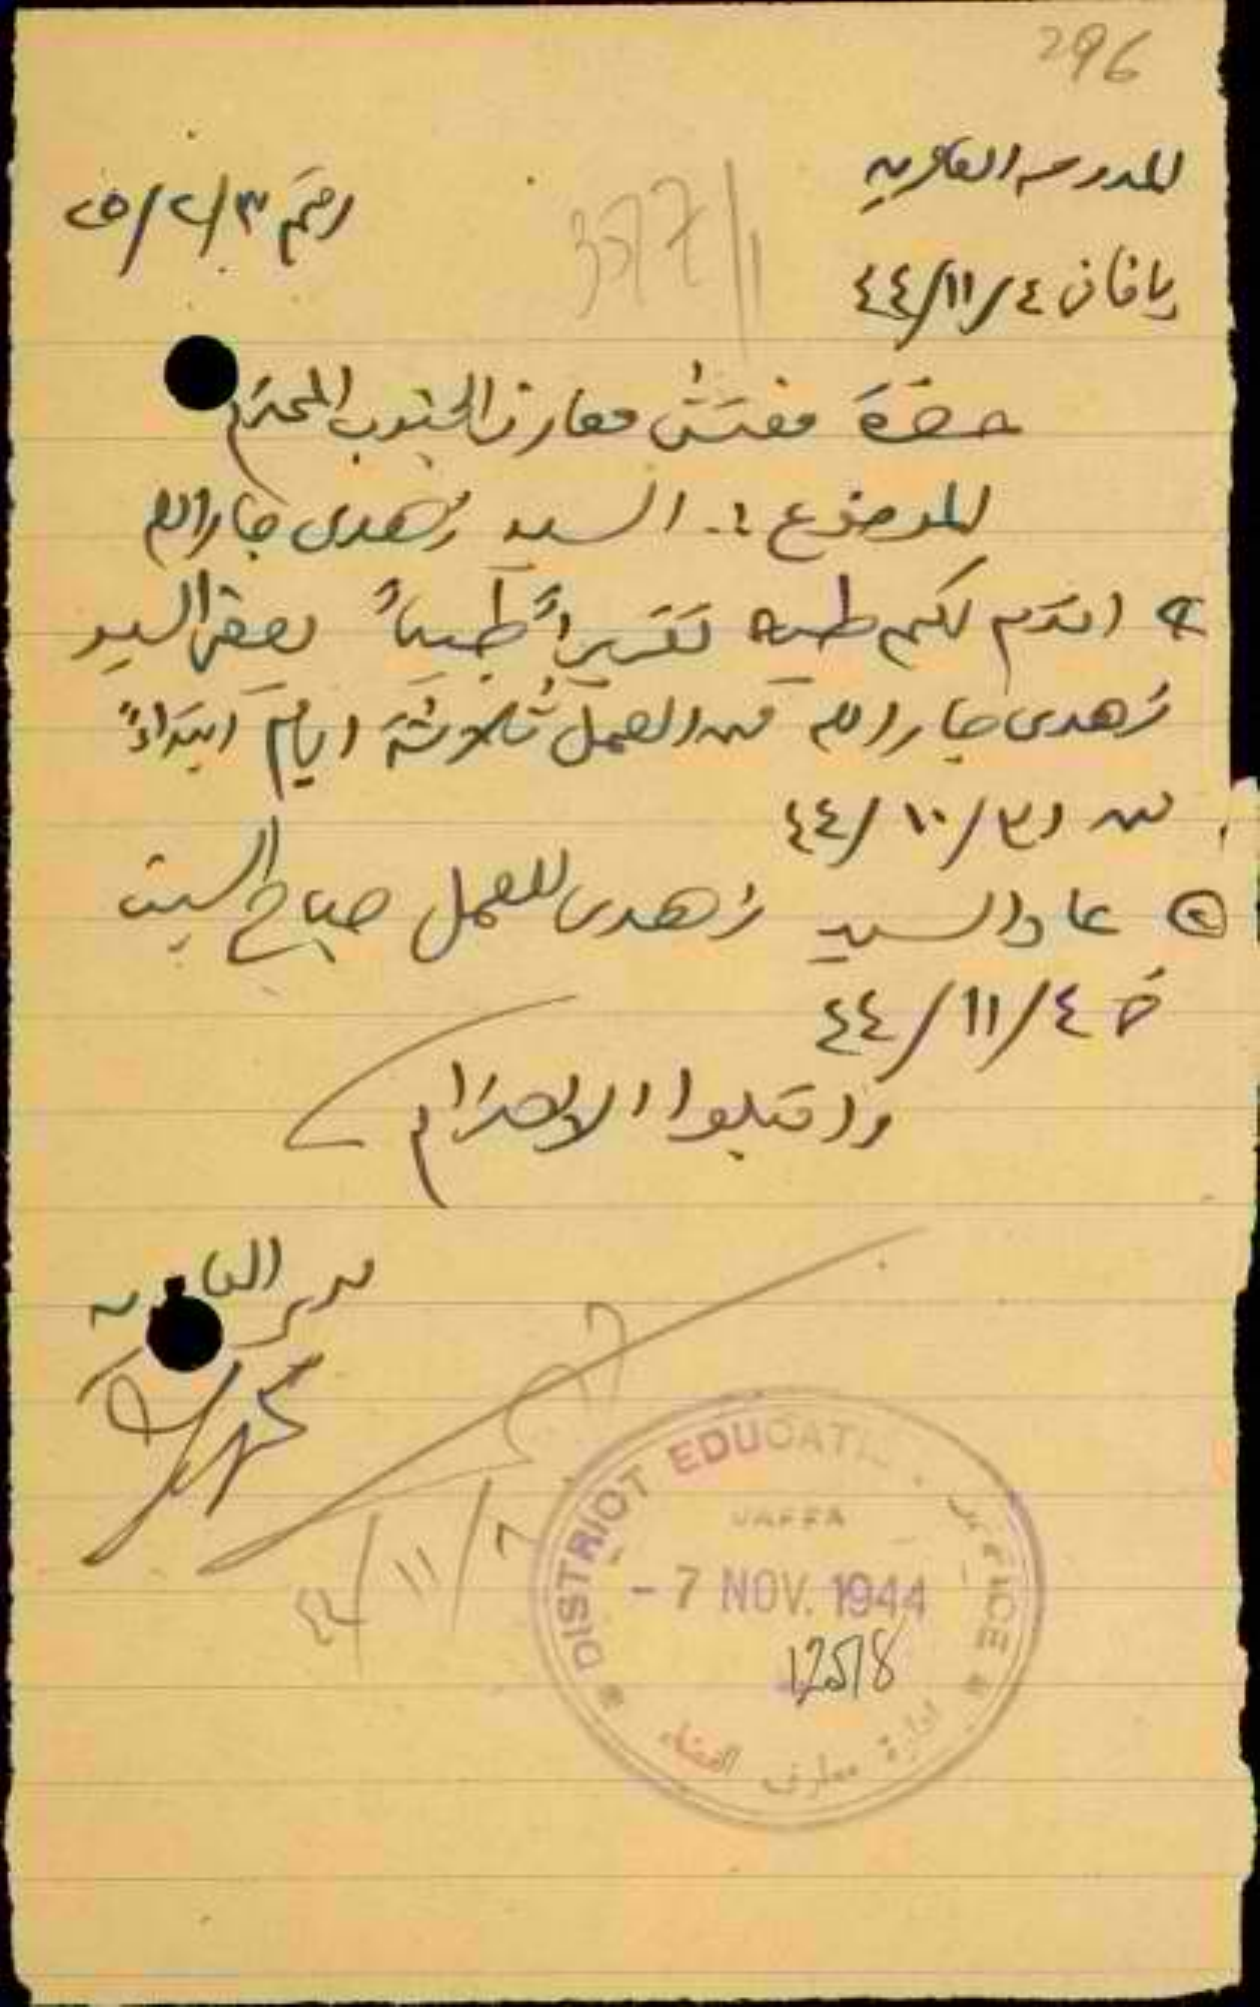 296
المدرسة العامرية
رقم ٣/٢/٢٥
3577/1
يافا في ٤/١١/٤٤
حضرة مفتش معارف الجنوب المحترم
الموضوع :- السيد زهدي جارالله
١ اقدم لكم طيه تقريراً طبياً يعفي السيد
زهدي جار الله من العمل ثلاثة ايام ابتداءً
من ٣١/١٠/٤٤
٢ عاد السيد زهدي للعمل صباح السبت
في ٤/١١/٤٤
واقبلوا الاحترام
مدير العامرية
٧/١١/٤٤
DISTRICT EDUCATION OFFICE
JAFFA
- 7 NOV. 1944
12518
ادارة معارف القضاء